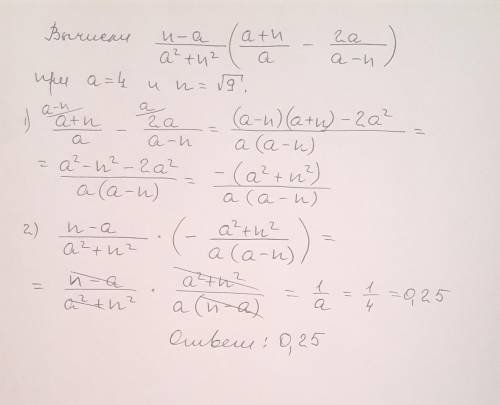 Вычисли (n-a)/(a²+n²) ((a+n)/a - 2a/(a-n))
при a=4 и n=√9.
1) ᵃ⁻ⁿ/(a+n)/a - ᵃ/2a/(a-n) = ((a-n)(a+n)-2a²)/(a(a-n)) =
= (a²-n²-2a²)/(a(a-n)) = -(a²+n²)/(a(a-n))
2) (n-a)/(a²+n²) · (- (a²+n²)/(a(a-n))) =
= (n-a)/(a²+n²) · (a²+n²)/(a(n-a)) = 1/a = 1/4 = 0,25
Ответ: 0,25